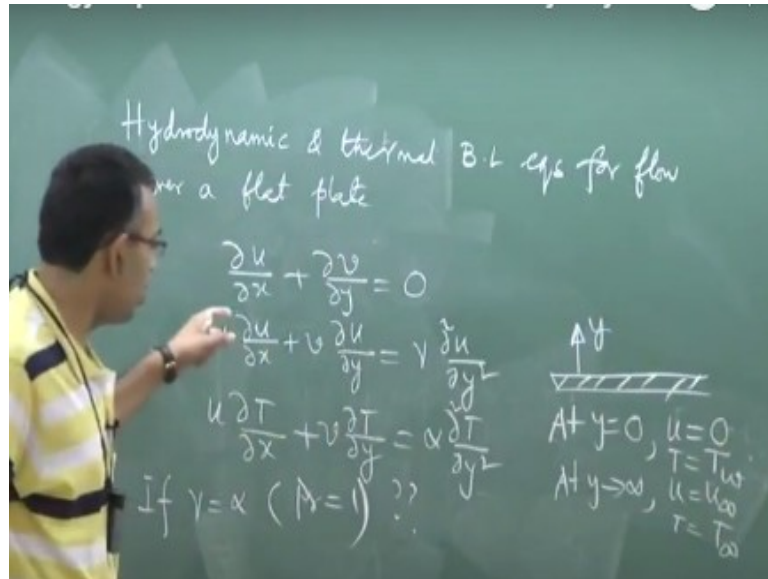 Hydrodynamic & thermal B.L eqs for flow
a flat plate
∂u/∂x + ∂v/∂y = 0
∂u/∂x + v ∂u/∂y = ν ∂²u/∂y²
u ∂T/∂x + v ∂T/∂y = α ∂²T/∂y²
If ν = α (Pr = 1) ??
y
At y=0, u=0
T=Tw
At y→∞, u=u∞
T=T∞